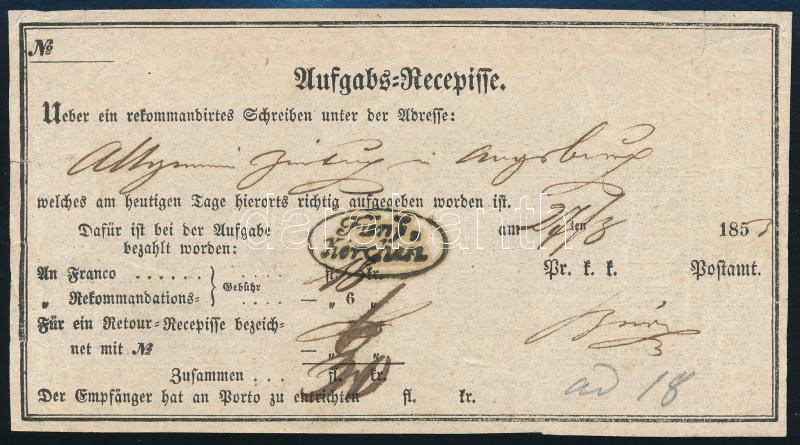 No
Aufgabs-Recepisse.
Ueber ein rekommandirtes Schreiben unter der Adresse:
Allgemeine Zeitung in Augsburg
welches am heutigen Tage hierorts richtig aufgegeben worden ist.
Dafür ist bei der Aufgabe bezahlt worden:
Fünf-
Kirchen
am 27/ten 185
An Franco . . . . . . Gebühr . . . . fl. kr.
„ Rekommandations- — „ 6 „
Pr. k. k. Postamt.
Für ein Retour-Recepisse bezeich-
net mit No — „ „
Zusammen . . . fl. kr.
30
ad 18
Der Empfänger hat an Porto zu entrichten fl. kr.
darabanth